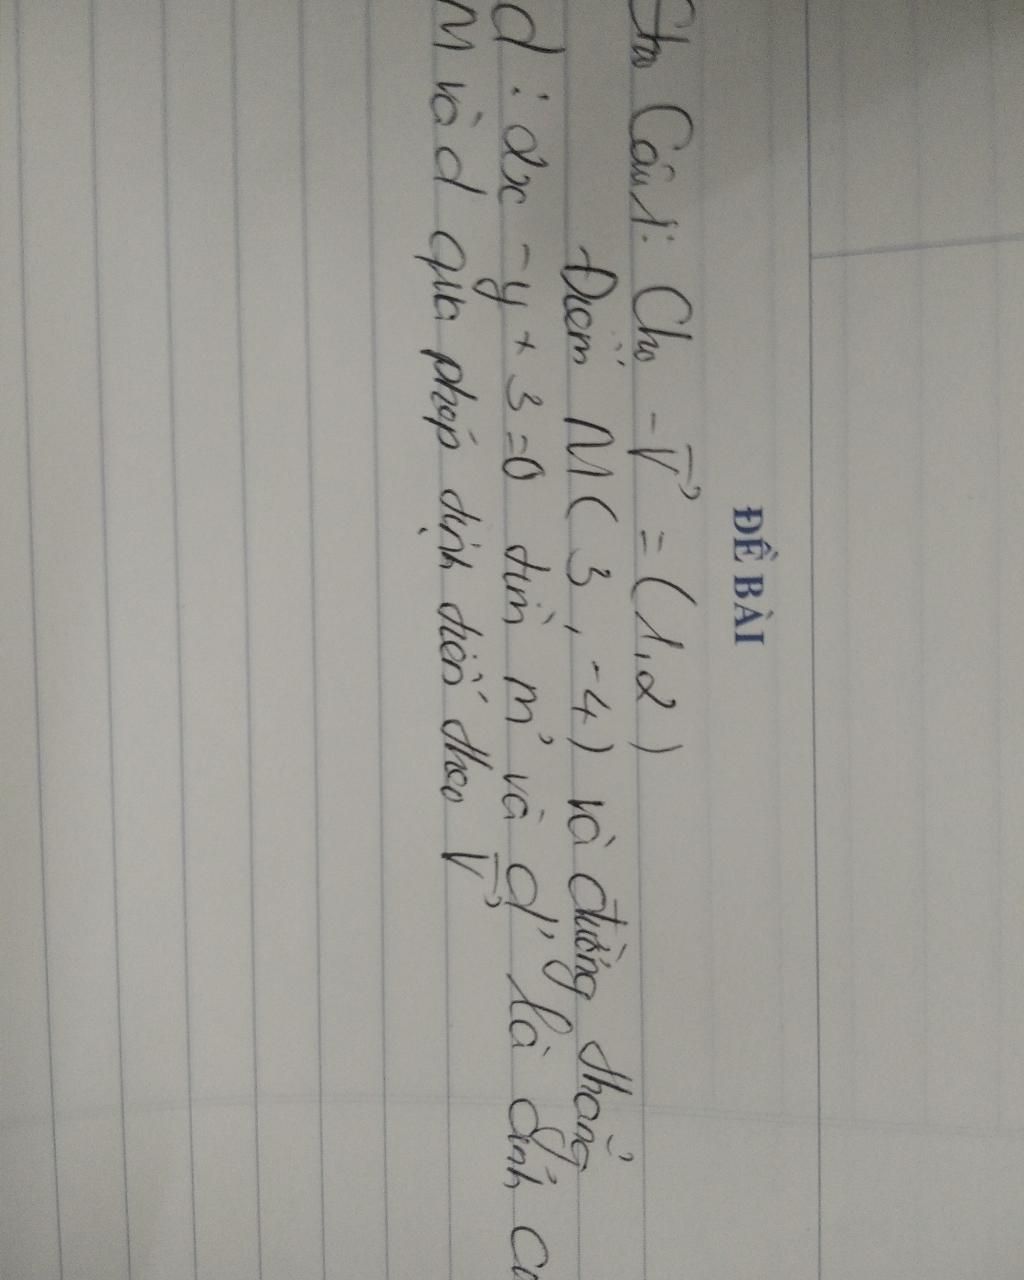 ĐỀ BÀI
Câu 1: Cho -V⃗ = (1,2)
Điểm M( 3 , -4) và đường thẳng
d : 2x - y + 3 =0 tìm m' và d' là ảnh
M và d qua phép tịnh tiến theo V⃗